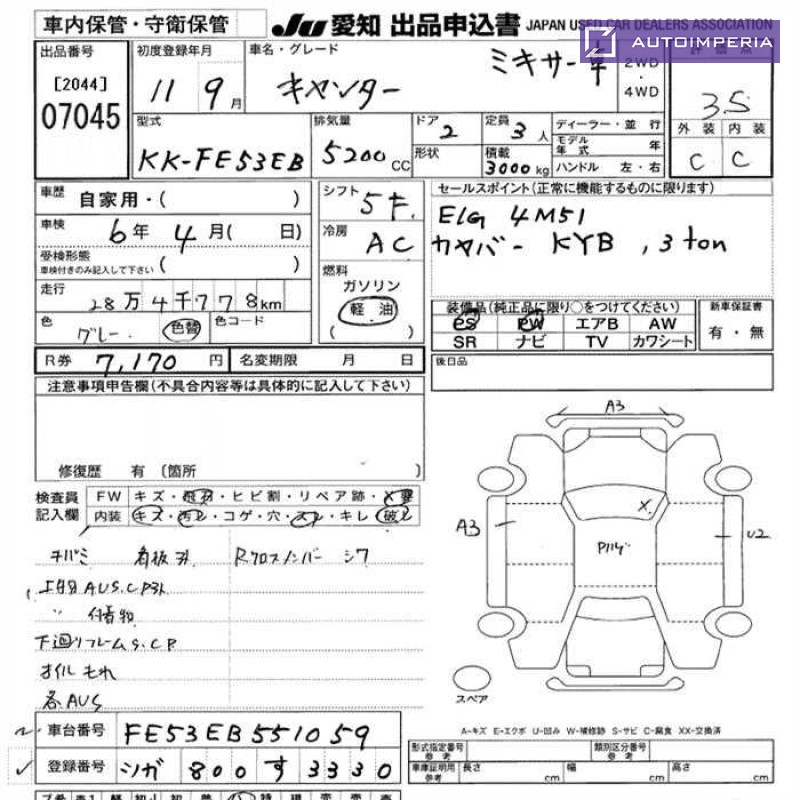 車内保管・守衛保管
JU 愛知 出品申込書 JAPAN USED CAR DEALERS ASSOCIATION
AUTOIMPERIA
出品番号
[2044]
07045
初度登録年月
11 9月
車名・グレード
キャンター
ミキサー車
2WD
・
4WD
3.5
外装 内装
C C
型式
KK-FE53EB
排気量
5200 CC
ドア
2
形状
定員
3人
積載
3000kg
ディーラー・並行
モデル年式 年
ハンドル 左・右
車歴 自家用・( )
車検 6年 4月( 日)
受検形態
車検付きのみ記入して下さい ( )
走行
28万4千778km
色
グレー 色替
色コード
シフト
5F
冷房
AC
燃料
ガソリン
軽油
( )
セールスポイント(正常に機能するものに限ります)
E/G 4M51
カヤバー KYB , 3 ton
装備品(純正品に限り○をつけてください)
PS PW エアB AW
SR ナビ TV カワシート
新車保証書
有・無
R券 7,170円
名変期限 月 日
後日品
注意事項申告欄(不具合内容等は具体的に記入して下さい)
修復歴 有 〔箇所 〕
検査員
記入欄
FW キズ・飛石・ヒビ割・リペア跡・X要
内装 キズ・汚レ・コゲ・穴・スレ・キレ・破レ
キバミ 看板 Rクロスメンバー シワ
AUS.C
〃 付着物
下廻りフレームS.C
オイルもれ
各AUS
A3
A3
X
U2
スペア
A-キズ E-エクボ U-凹み W-補修跡 S-サビ C-腐食 XX-交換済
車台番号 FE53EB551059
登録番号 シガ 800 す 3330
形式指定番号 参考
類別区分番号 参考
車庫証明用 参考 長さ cm 幅 cm 高さ cm